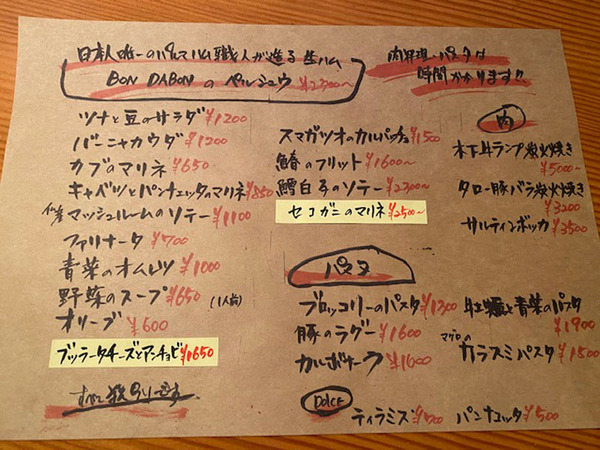 日本人唯一のパルマハム職人が造る生ハム
BON DABONのペルシュウ ¥2300〜
肉料理・パスタは
時間かかります!!
ツナと豆のサラダ ¥1200
バーニャカウダ ¥1200
カブのマリネ ¥650
キャベツとパンチェッタのマリネ ¥850
マッシュルームのソテー ¥1100
ファリナータ ¥700
青菜のオムレツ ¥1000
野菜のスープ ¥650 (1人前)
オリーブ ¥600
ブッラータチーズとアンチョビ ¥1650
すべて税別です
スマガツオのカルパッチョ ¥1500
鰆のフリット ¥1600〜
鱈白子のソテー ¥2300〜
セコガニのマリネ ¥2500〜
肉
木下牛ランプ炭火焼き
¥5000〜
タロー豚バラ炭火焼き
¥3200
サルティンボッカ ¥3500
パスタ
ブロッコリーのパスタ ¥1300
豚のラグー ¥1600
カルボナーラ ¥1600
牡蠣と青菜のパスタ
¥1900
マグロの
カラスミパスタ ¥1500
DOLCE
ティラミス ¥700
パンナコッタ ¥500